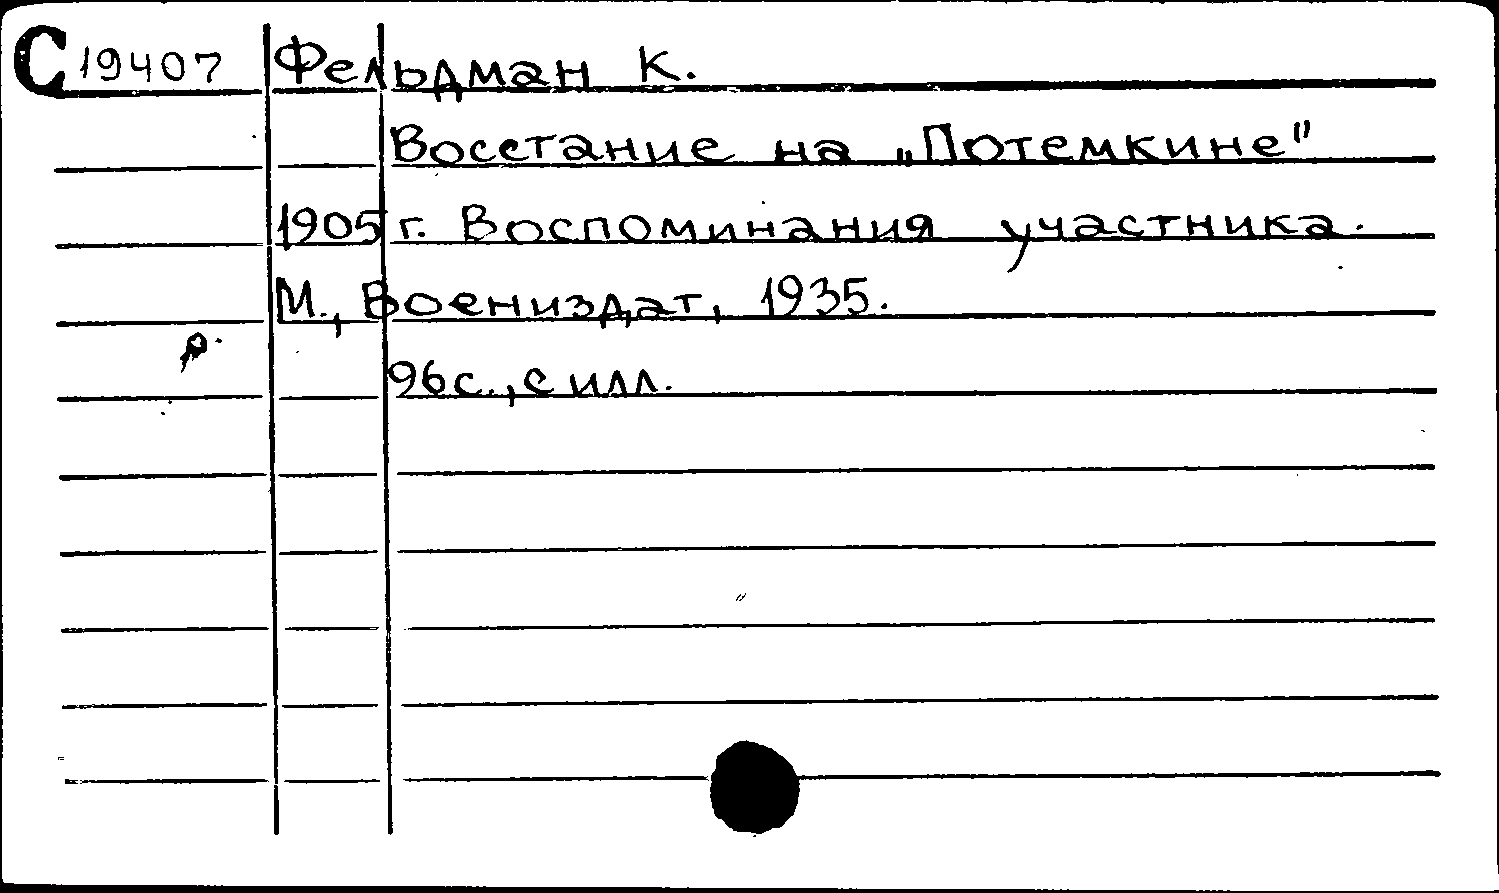 С 19407 Фельдман К.
Восстание на „Потемкине"
1905 г. Воспоминания участника.
М., Воениздат, 1935.
96 с., с илл.